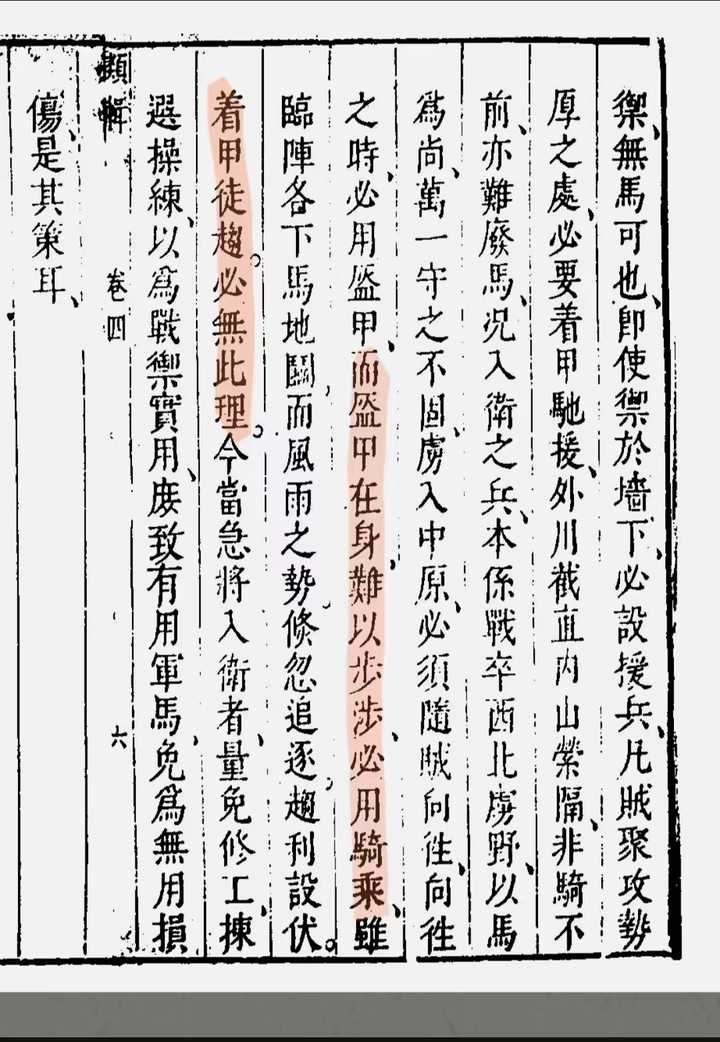 禦、無馬可也、即使禦於墻下、必設援兵、凡賊聚攻勢
厚之處、必要着甲馳援、外川截直内山縈隔、非騎不
前、亦難廢馬、况入衛之兵、本係戰卒西北虜野、以馬
為尚、萬一守之不固、虜入中原、必須隨賊向徃、向徃
之時、必用盔甲、而盔甲在身、難以步涉、必用騎乘、雖
臨陣各下馬地鬭、而風雨之勢、倏忽追逐、趨利設伏。
着甲徒趨。必無此理。今當急將入衛者、量免修工、揀
選操練、以為戰禦實用、庻致有用軍馬、免為無用損
卷四
六
傷、是其策耳、